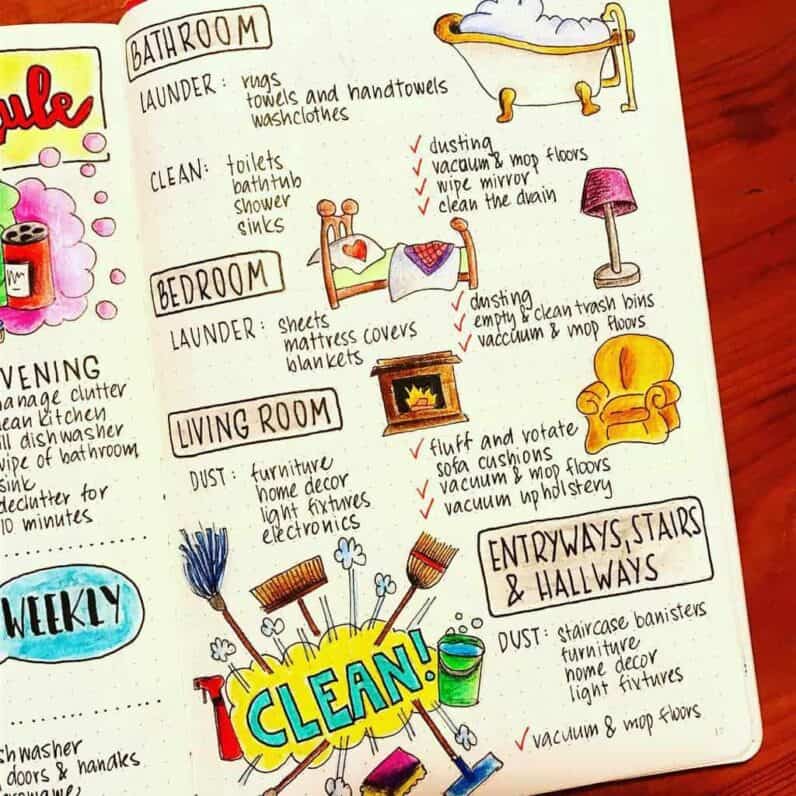 ule
VENING
anage clutter
ean kitchen
ill dishwasher
wipe of bathroom
sink
declutter for
10 minutes
WEEKLY
shwasher
doors & handles
BATHROOM
LAUNDER: rugs
towels and handtowels
washclothes
CLEAN: toilets
bathtub
shower
sinks
✓ dusting
✓ vacuum & mop floors
✓ wipe mirror
✓ clean the drain
BEDROOM
LAUNDER: sheets
mattress covers
blankets
✓ dusting
✓ empty & clean trash bins
✓ vaccuum & mop floors
LIVING ROOM
DUST: furniture
home decor
light fixtures
electronics
✓ fluff and rotate
sofa cushions
✓ vacuum & mop floors
✓ vacuum upholstery
ENTRYWAYS, STAIRS
& HALLWAYS
DUST: staircase banisters
furniture
home decor
light fixtures
✓ vacuum & mop floors
CLEAN!